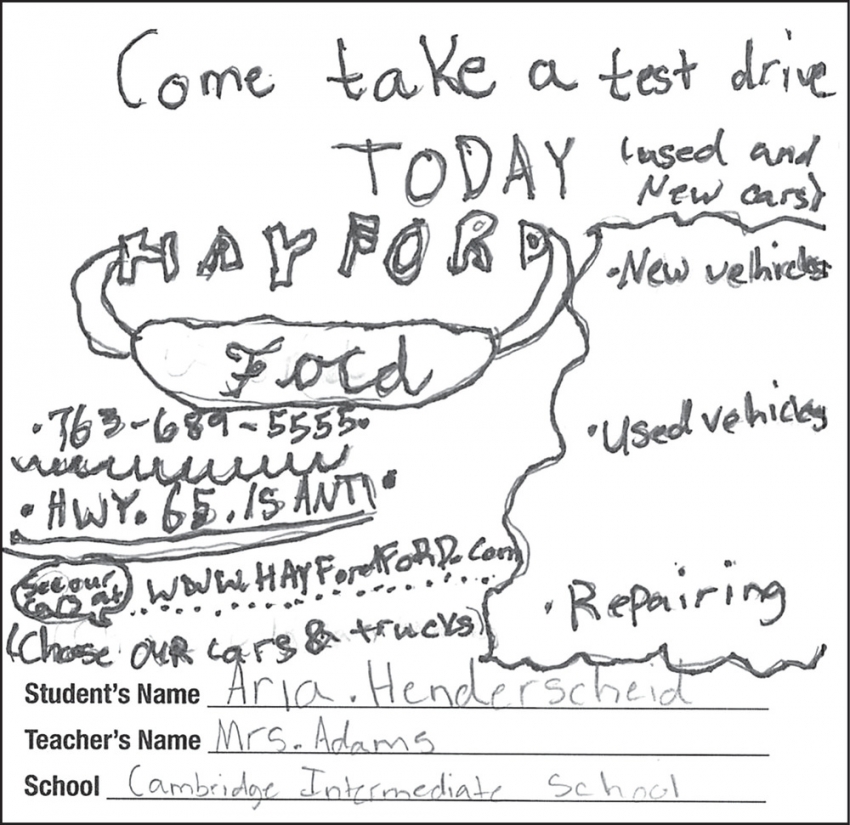 Come take a test drive
TODAY
(used and
New cars)
HAYFORD
Ford
• 763-689-5555•
• HWY. 65. ISANTI •
See our
cars at
WWW.HAYFordFORD.com
(Chose OUR cars & trucks)
•New velhicles
•Used vehicles
• Repairing
Student's Name Aria. Henderscheid
Teacher's Name Mrs. Adams
School Cambridge Intermediate School